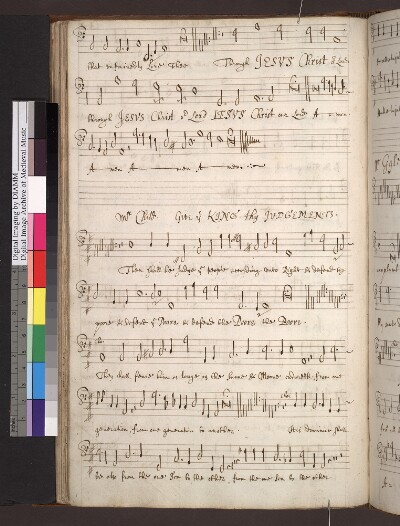 that unfeinedly Love thee Through JESUS Christ o Lord
through JESUS Christ o Lord JESUS Christ our Lord A men
A men A men A men
Mr Give ye KING thy JUDGEMENTS.
Then shall he Judge ye people according unto Right & defend ye
poore & defend ye Poore & defend the Poore the Poore.
They shall feare thee as long as the Sunne & Moone endureth from one
generation from one generation to another.
be also from the one Sea to the other, from the one Sea to the other
Digital Imaging by DIAMM
Digital Image Archive of Medieval Music